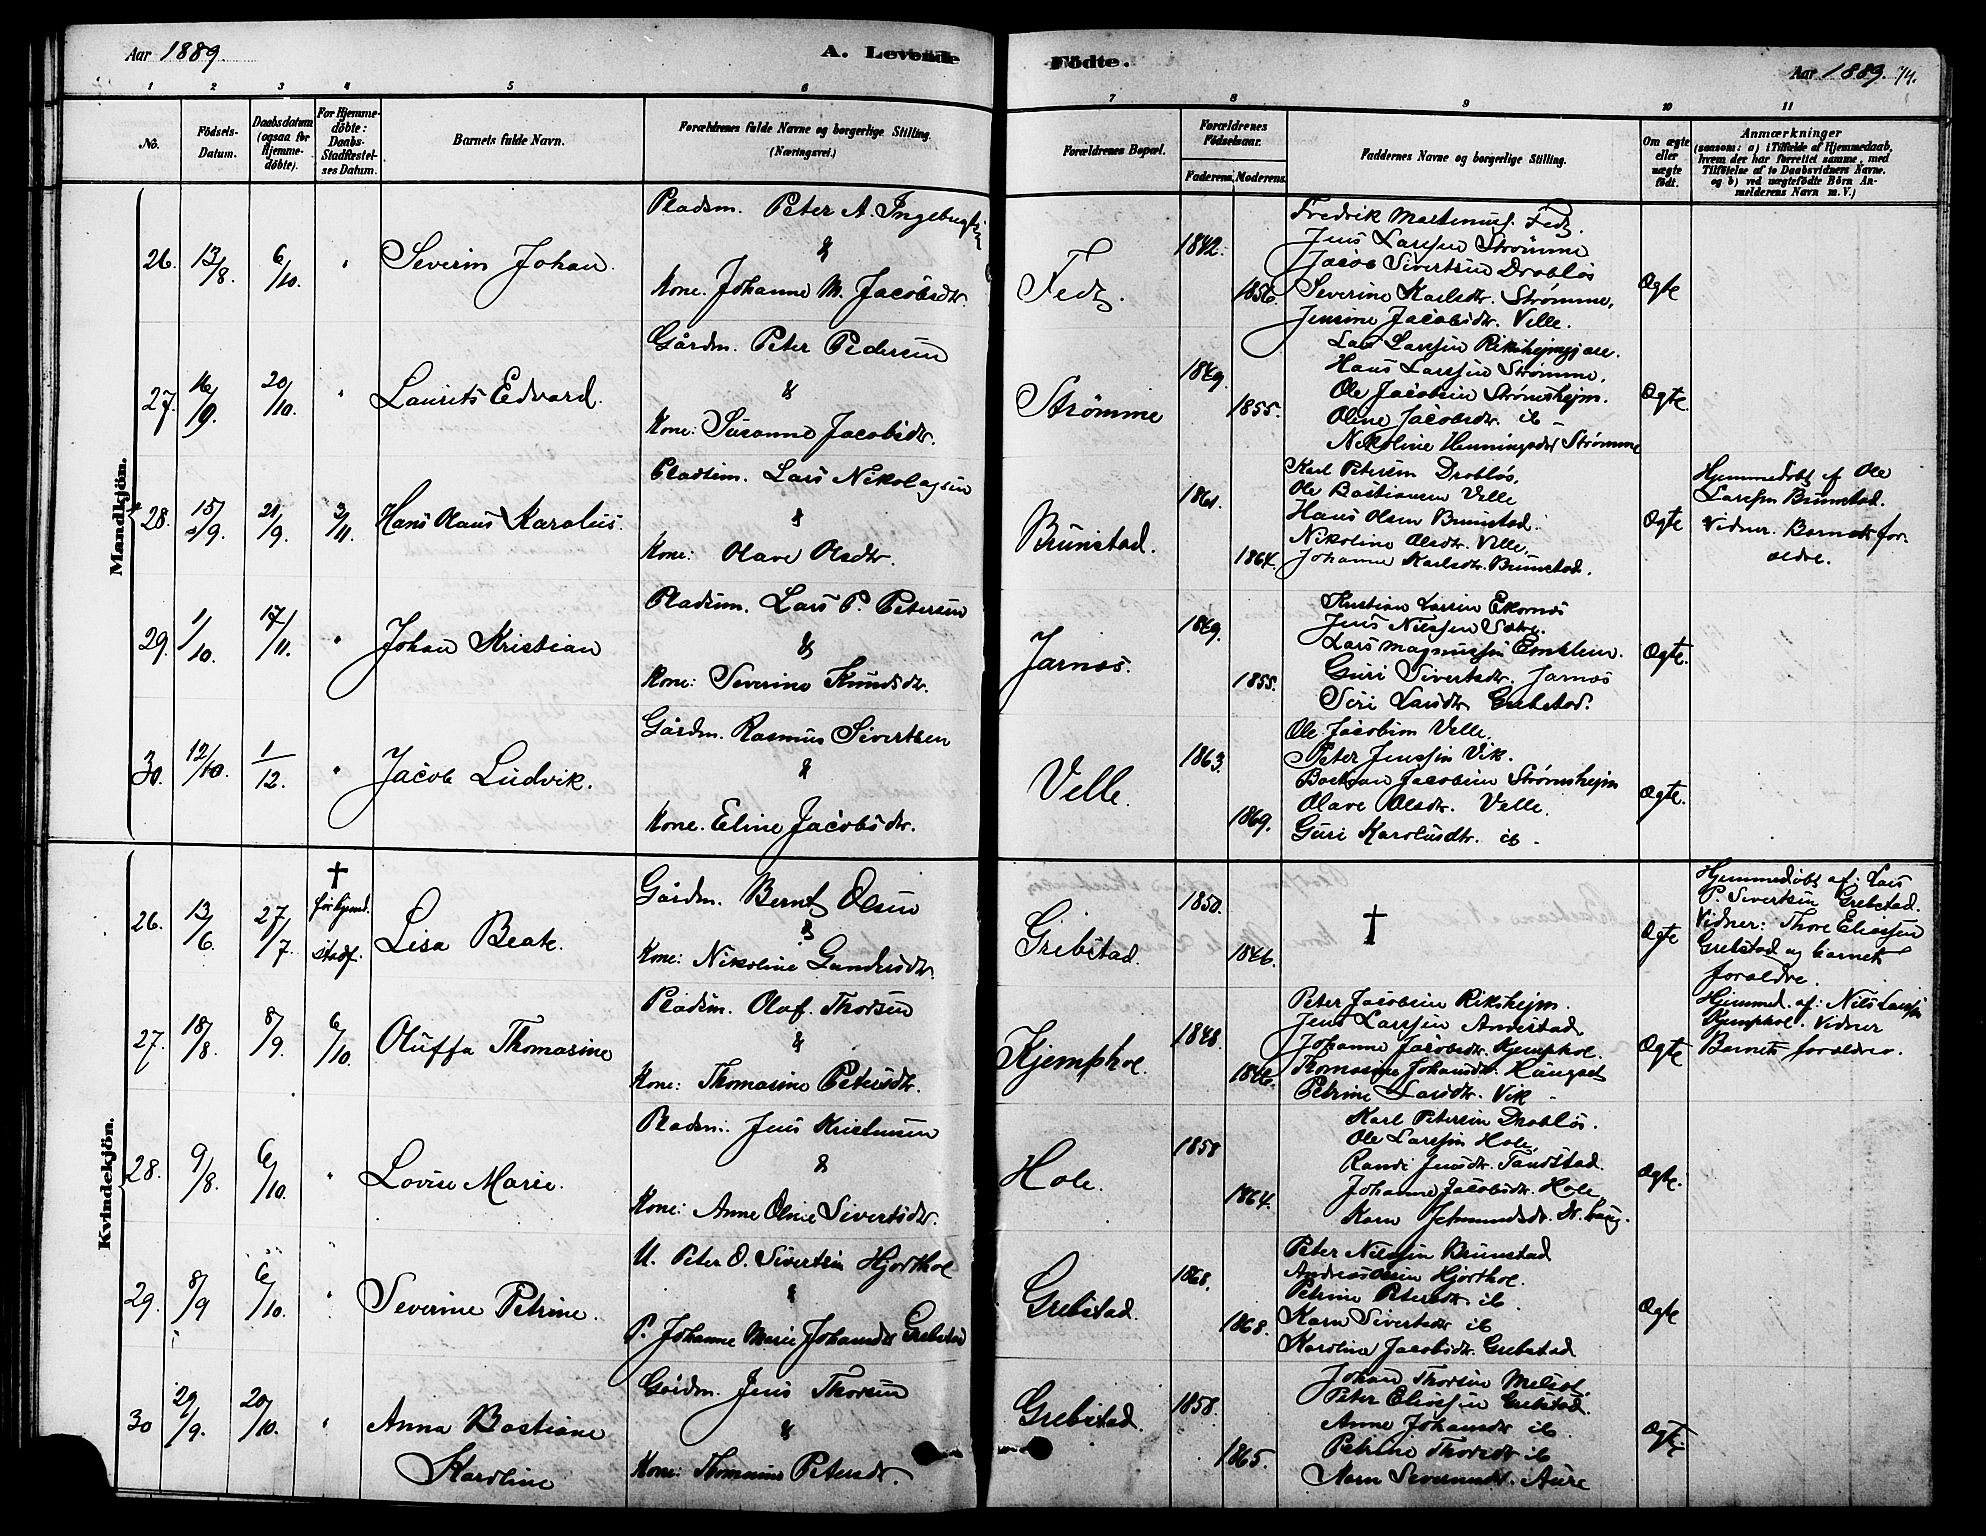 Aar 1889.
A. Levende Födte.
Aar 1889. 74.
1 2 3 4 5 6 7 8 9 10 11
No.
Födsels-Datum.
Daabsdatum (ogsaa for Hjemme-döbte).
For Hjemme-döbte: Daabs-Stadfæstel-ses Datum.
Barnets fulde Navn.
Forældrenes fulde Navne og borgerlige Stilling. (Næringsvei.)
Forældrenes Bopæl.
Forældrenes Födselsaar.
Faderens. Moderens.
Faddernes Navne og borgerlige Stilling.
Om ægte eller uægte födt.
Anmærkninger
(saasom: a) i Tilfælde af Hjemmedaab, hvem der har forrettet samme, med Tilföielse af to Daabsvidners Navne. og b) ved uægtefödte Börn An-melderens Navn m. V.)
Mandkjön.
26. 13/8. 6/10. " Severin Johan.
Pladsm. Peter A. Ingebrigtsen
&
Kone. Johanne M. Jacobsdtr.
Fedz. 1842. 1856.
Fredrik Martinus. Fedz.
Jens Larssen Strømme
Jacob Sivertsen Drabløs
Severine Karlsdtr. Strømme,
Jensine Jacobsdtr. Velle.
Ægte
27. 16/9. 20/10. " Laurits Edvard.
Gårdm. Peter Pedersen
&
Kone: Susanne Jacobsdtr.
Strømme 1849. 1855.
Lars Larssen Rikshejmgjære.
Hans Larssen Strømme,
Ole Jacobsen Strømshejm.
Oline Jacobsdtr. ib -
Nikoline Henningsdtr Strømme
Ægte.
28. 15/9. 21/9. 3/11. Hans Olaus Karolus.
Pladsm. Lars Nikolaysen
&
Kone: Olave Olsdtr.
Brunstad. 1861. 1864.
Karl Petersen Drabløs,
Ole Bastiansen Velle
Hans Olsen Brunstad.
Nikoline Olsdtr. Velle,
Johanne Karlsdtr. Brunstad.
Ægte
Hjemmedøbt af Ole
Larssen Brunstad.
Vidner. Barnets for-
ældre.
29. 1/10. 17/11. " Johan Kristian
Pladsm. Lars P. Petersen
&
Kone: Severine Knudsdtr.
Jarnæs. 1849. 1855.
Kristian Larsen Ekornæs
Jens Nilssen Sætre.
Lars Magnussen Emblem.
Guri Sivertsdtr. Jarnæs
Siri Larsdtr Grebstad.
Ægte.
30. 12/10. 1/12. " Jacob Ludvik.
Gårdm. Rasmus Sivertsen
&
Kone. Eline Jacobsdtr.
Velle. 1863. 1869.
Ole Jacobsen Velle.
Peter Jenssen Vik.
Bastian Jacobsen Strømshejm
Olave Olsdtr. Velle.
Guri Karolusdtr. ib.
Ægte.
Kvindekjön.
26. 13/6. 27/7. † før hjemd. stadf. Lisa Beate.
Gårdm. Bernt Olsen
&
Kone: Nikoline Gundersdtr.
Grebstad. 1850. 1846.
†
Ægte
Hjemmedøbt af: Lars
P. Sivertsen Grebstad.
Vidner: Thore Eliassen
Grebstad og barnets
forældre.
27. 18/8. 8/9. 6/10. Oluffa Thomasine
Pladsm. Olaf. Thorsen
&
Kone: Thomasine Petersdtr.
Kjemphol. 1848. 1846.
Peter Jacobsen Rikshejm.
Jens Larssen Amestad
Johanne Jacobsdtr. Kjemphol.
Thomasine Johansdtr. Haugset
Petrine Larsdtr. Vik -
Ægte
Hjemmed. af: Nils Larssen
Kjemphol. Vidner
Barnets forældre.
28. 9/8. 6/10. " Lovise Marie.
Pladsm: Jens Kristensen
&
Kone: Anne Oline Sivertsdtr.
Hole. 1858 1864.
Karl Petersen Drabløs.
Ole Larssen Hole,
Randi Jensdtr. Tandstad.
Johanne Jacobsdtr. Hole,
Karn Jetmundsdtr.
Ægte.
29. 8/9 6/10. " Severine Petrine.
U. Peter O. Sivertsen Hjorthol
&
P. Johanne Marie Johansdtr Grebstad
Grebstad. 1868. 1868.
Peter Nilssen Brunstad
Andreas Olsen Hjorthol.
Petrine Petersdtr. ib.
Karn Sivertsdtr ib
Karoline Jacobsdtr. Grebstad
Ægte
30 29/9. 20/10. " Anna Bastiane
Karoline
Gårdm. Jens Thorsen
&
Kone: Thomasine Petersdtr.
Grebstad. 1858. 1865.
Johan Thorsen Melset.
Peter Eliassen Grebstad.
Anne Johansdtr ib.
Petrine Thorsdtr ib
Karn Severinsdtr. Aure
Ægte.